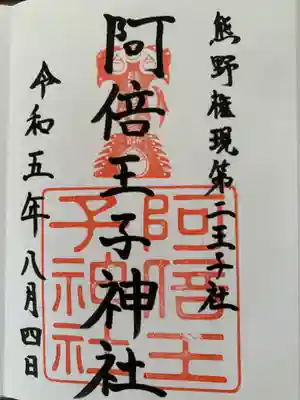 熊野権現第二王子社
阿倍王子神社
阿倍王
子神社
令和五年八月四日